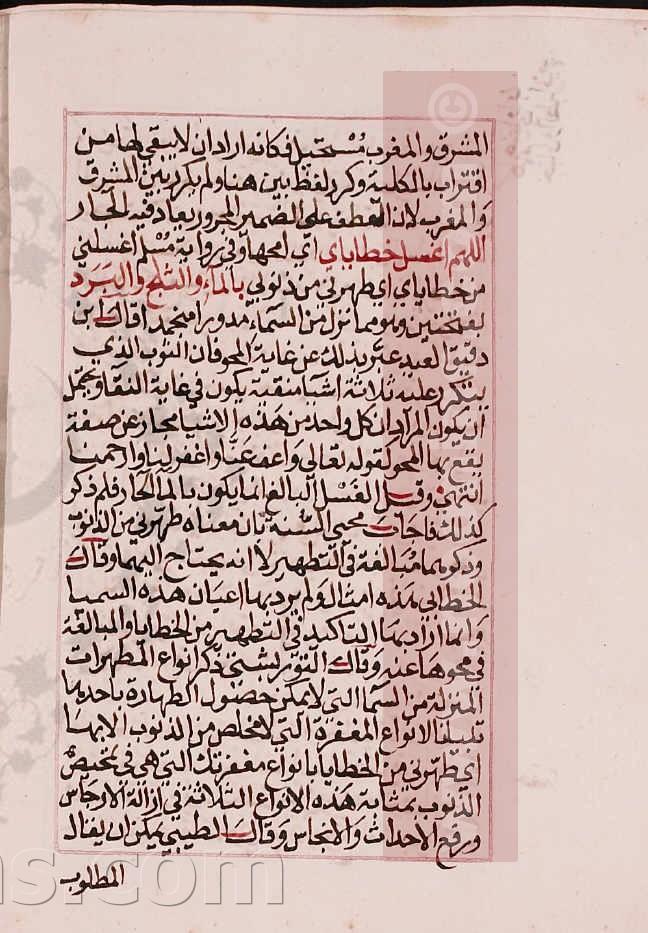 المشرق والمغرب مستحيل فكانه اراد ان لا يبقي لها من
اقتراب بالكلية وكرر لفظ بين هنا ولم يكرر بين المشرق
والمغرب لان العطف علي الضمير المجرور يعاد فيه الجار
اللهم اغسل خطاياي اي امحها وفي رواية مسلم اغسلني
من خطاياي اي طهرني من ذنوبي بالماء والثلج والبرد
بفتحتين وهو مما نزل من السماء مدورا منجمدا قال ابن
دقيق العيد عبر بذلك عن غاية المحو فان الثوب الذي
يتكرر عليه ثلاثة اشيا منقية يكون في غاية النقا ويحتمل
ان يكون المراد ان كل واحد من هذه الاشيا مجاز عن صفة
يقع بها المحو لقوله تعالي واعف عنا واغفر لنا وارحمنا
انتهي وقيل الغسل البالغ انما يكون بالما الحار فلم ذكر
كذلك فاجاب محيي السنة بان معناه طهرني من الذنوب
وذكرهما مبالغة في التطهير لا انه يحتاج اليهما وقال
الخطابي هذه امثال ولم يرد بها اعيان هذه السميا
وانما اراد بها التاكيد في التطهير من الخطايا والمبالغة
في محوها عنه وقال التوربشتي ذكر انواع المطهرات
المنزلة من السما التي لا يمكن حصول الطهارة باحدها
تبيانا لانواع المغفرة التي لا تخلص من الذنوب الا بها
اي طهرني من الخطايا بانواع مغفرتك التي هي في تمحيص
الذنوب بمثابة هذه الانواع الثلاثة في ازالة الارجاس
ورفع الاحداث والانجاس وقال الطيبي يمكن ان يقال
المطلوب
ns.com